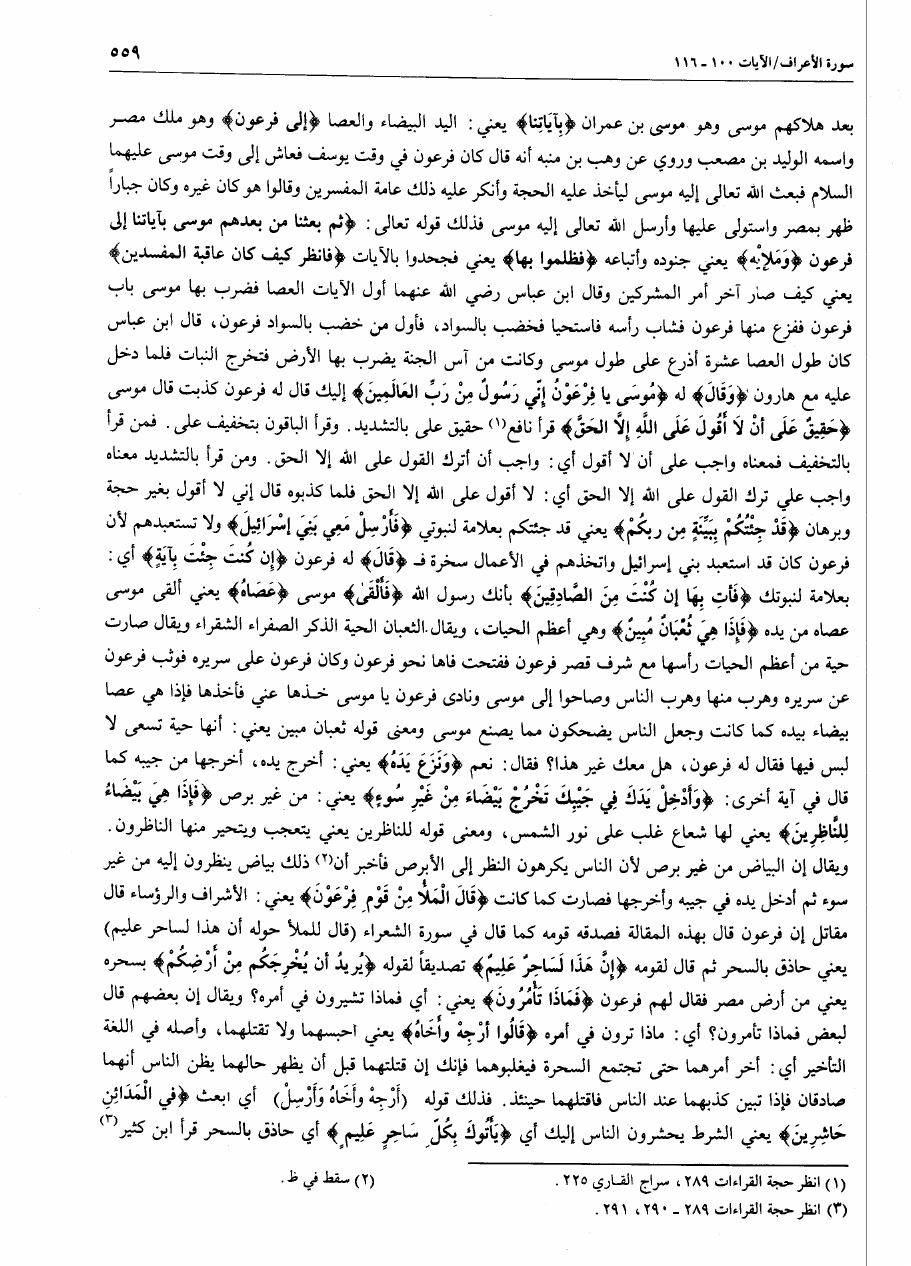 سورة الأعراف/الآيات ١٠٠ - ١١٦
٥٥٩
بعد هلاكهم موسى وهو موسى بن عمران ﴿بِآيَاتِنا﴾ يعني: اليد البيضاء والعصا ﴿إلى فرعون﴾ وهو ملك مصر
واسمه الوليد بن مصعب وروي عن وهب بن منبه أنه قال كان فرعون في وقت يوسف فعاش إلى وقت موسى عليهما
السلام فبعث الله تعالى إليه موسى ليأخذ عليه الحجة وأنكر عليه ذلك عامة المفسرين وقالوا هو كان غيره وكان جباراً
ظهر بمصر واستولى عليها وأرسل الله تعالى إليه موسى فذلك قوله تعالى: ﴿ثم بعثنا من بعدهم موسى بآياتنا إلى
فرعون ﴿وَمَلإيْه﴾ يعني جنوده وأتباعه ﴿فظلموا بها﴾ يعني فجحدوا بالآيات ﴿فانظر كيف كان عاقبة المفسدين﴾
يعني كيف صار آخر أمر المشركين وقال ابن عباس رضي الله عنهما أول الآيات العصا فضرب بها موسى باب
فرعون ففزع منها فرعون فشاب رأسه فاستحيا فخضب بالسواد، فأول من خضب بالسواد فرعون، قال ابن عباس
كان طول العصا عشرة أذرع على طول موسى وكانت من آس الجنة يضرب بها الأرض فتخرج النبات فلما دخل
عليه مع هارون ﴿وَقَالَ﴾ له ﴿مُوسَى يا فِرْعَوْنُ إِنِّي رَسُولٌ مِنْ رَبِّ العَالَمِينَ﴾ إليك قال له فرعون كذبت قال موسى
﴿حَقِيقٌ عَلَى أنْ لَا أقُولَ عَلَى اللَّهِ إلَّا الحَقَّ﴾ قرأ نافع(١) حقيق على بالتشديد. وقرأ الباقون بتخفيف على. فمن قرأ
بالتخفيف فمعناه واجب على أن لا أقول أي: واجب أن أترك القول على الله إلا الحق. ومن قرأ بالتشديد معناه
واجب علي ترك القول على الله إلا الحق أي: لا أقول على الله إلا الحق فلما كذبوه قال إني لا أقول بغير حجة
وبرهان ﴿قَدْ جِئْتُكُمْ بِبَيِّنَةٍ مِن ربكُمْ﴾ يعني قد جئتكم بعلامة لنبوتي ﴿فَأَرْسِلْ مَعِي بَنِي إسْرَائِيلَ﴾ ولا تستعبدهم لأن
فرعون كان قد استعبد بني إسرائيل واتخذهم في الأعمال سخرة فـ ﴿قَالَ﴾ له فرعون ﴿إن كُنتَ جِئْتَ بِآيَةٍ﴾ أي:
بعلامة لنبوتك ﴿فَأتِ بِهَا إن كُنْتَ مِنَ الصَّادِقِينَ﴾ بأنك رسول الله ﴿فَأَلْقَى﴾ موسى ﴿عَصَاهُ﴾ يعني ألقى موسى
عصاه من يده ﴿فَإِذَا هِيَ ثُعْبَانٌ مُبِينٌ﴾ وهي أعظم الحيات، ويقال الثعبان الحية الذكر الصفراء الشقراء ويقال صارت
حية من أعظم الحيات رأسها مع شرف قصر فرعون ففتحت فاها نحو فرعون وكان فرعون على سريره فوثب فرعون
عن سريره وهرب منها وهرب الناس وصاحوا إلى موسى ونادى فرعون يا موسى خذها عني فأخذها فإذا هي عصا
بيضاء بيده كما كانت وجعل الناس يضحكون مما يصنع موسى ومعنى قوله ثعبان مبين يعني: أنها حية تسعى لا
لبس فيها فقال له فرعون، هل معك غير هذا؟ فقال: نعم ﴿وَنَزَعَ يَدَهُ﴾ يعني: أخرج يده، أخرجها من جيبه كما
قال في آية أخرى: ﴿وَأَدْخِلْ يَدَكَ فِي جَيْبِكَ تَخْرُجْ بَيْضَاءَ مِنْ غَيْرِ سُوءٍ﴾ يعني: من غير برص ﴿فَإِذَا هِيَ بَيْضَاءُ
لِلنَّاظِرِينَ﴾ يعني لها شعاع غلب على نور الشمس، ومعنى قوله للناظرين يعني يتعجب ويتحير منها الناظرون.
ويقال إن البياض من غير برص لأن الناس يكرهون النظر إلى الأبرص فأخبر أن(٢) ذلك بياض ينظرون إليه من غير
سوء ثم أدخل يده في جيبه وأخرجها فصارت كما كانت ﴿قَالَ الْمَلأُ مِنْ قَوْمِ فِرْعَوْنَ﴾ يعني: الأشراف والرؤساء قال
مقاتل إن فرعون قال بهذه المقالة فصدقه قومه كما قال في سورة الشعراء (قال للملأ حوله أن هذا لساحر عليم)
يعني حاذق بالسحر ثم قال لقومه ﴿إنَّ هَذَا لَسَاحِرٌ عَلِيمٌ﴾ تصديقاً لقوله ﴿يُرِيدُ أن يُخْرِجَكُم مِنْ أرْضِكُمْ﴾ بسحره
يعني من أرض مصر فقال لهم فرعون ﴿فَمَاذَا تَأْمُرُونَ﴾ يعني: أي فماذا تشيرون في أمره؟ ويقال إن بعضهم قال
لبعض فماذا تأمرون؟ أي: ماذا ترون في أمره ﴿قَالُوا أرْجِهْ وأَخَاهُ﴾ يعني احبسهما ولا تقتلهما، وأصله في اللغة
التأخير أي: أخر أمرهما حتى تجتمع السحرة فيغلبوهما فإنك إن قتلتهما قبل أن يظهر حالهما يظن الناس أنهما
صادقان فإذا تبين كذبهما عند الناس فاقتلهما حينئذ. فذلك قوله (أَرْجِهْ وأخَاهُ وَأَرْسِلْ) أي ابعث ﴿في الْمَدَائِنِ
حَاشِرِينَ﴾ يعني الشرط يحشرون الناس إليك أي ﴿يَأْتُوكَ بِكُلِّ سَاحِرٍ عَلِيمٍ﴾ أي حاذق بالسحر قرأ ابن كثير(٣)
(١) انظر حجة القراءات ٢٨٩، سراج القاري ٢٢٥.
(٢) سقط في ظ.
(٣) انظر حجة القراءات ٢٨٩ - ٢٩٠، ٢٩١.